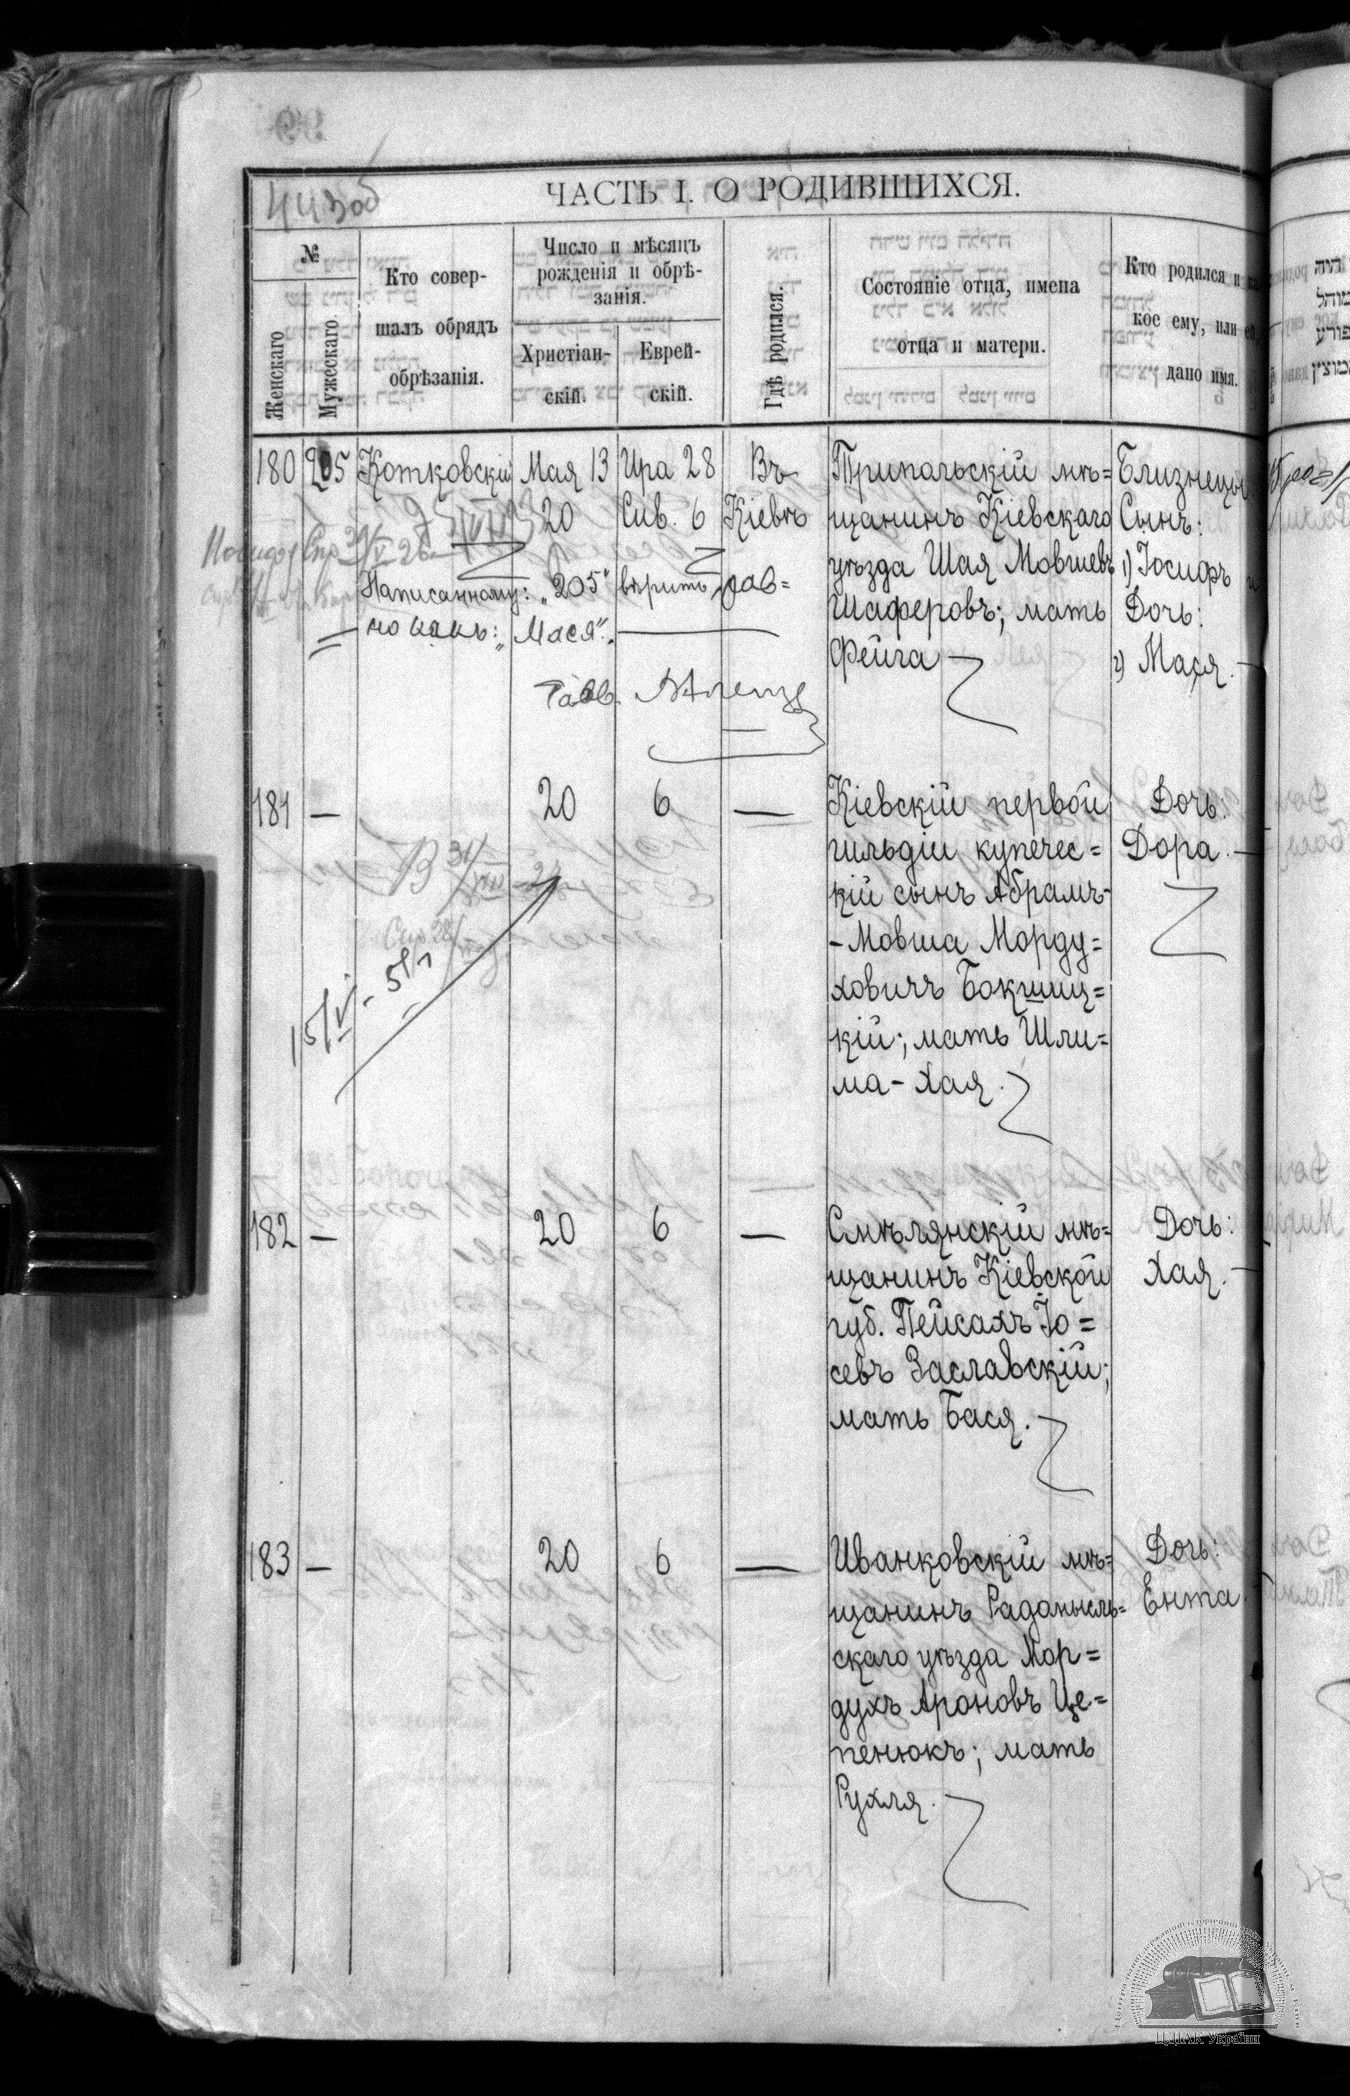 443 об
ЧАСТЬ I. О РОДИВШИХСЯ.
№
Женскаго
Мужескаго
Кто совер-
шалъ обрядъ
обрѣзанія.
Число и мѣсяцъ
рожденія и обрѣ-
занія.
Христіан-
скій.
Еврей-
скій.
Гдѣ родился.
Состояніе отца, имена
отца и матери.
Кто родился и
кое ему, или ей,
дано имя.
180 205 Котковскій Мая 13 Ира 28 Въ
20 Сив. 6 Кіевѣ
Трипольскій мѣ=
щанинъ Кіевскаго
уѣзда Шая Мовшевъ
Шаферовъ; мать
Фейга
Близнецы
Сынъ:
1) Іосифъ и
Дочь:
2) Мася.
Написанному: „205“ вѣрить, рав=
но какъ: „Мася“.
Равв.
181 — 20 6 —
Кіевскій первой
гильдіи купечес=
кій сынъ Абрамъ-
-Мовша Морду=
ховичъ Бокшиц=
кій; мать Шли=
ма-Хая.
Дочь:
Дора.
15/V - 51 г
182 — 20 6 —
Смѣлянскій мѣ=
щанинъ Кіевской
губ. Пейсахъ Іо=
севъ Заславскій;
мать Бася.
Дочь:
Хая.
183 — 20 6 —
Иванковскій мѣ=
щанинъ Радомысль=
скаго уѣзда Мор=
духъ Ароновъ Це=
пенюкъ; мать
Рухля.
Дочь:
Ента
ЦДІАК України